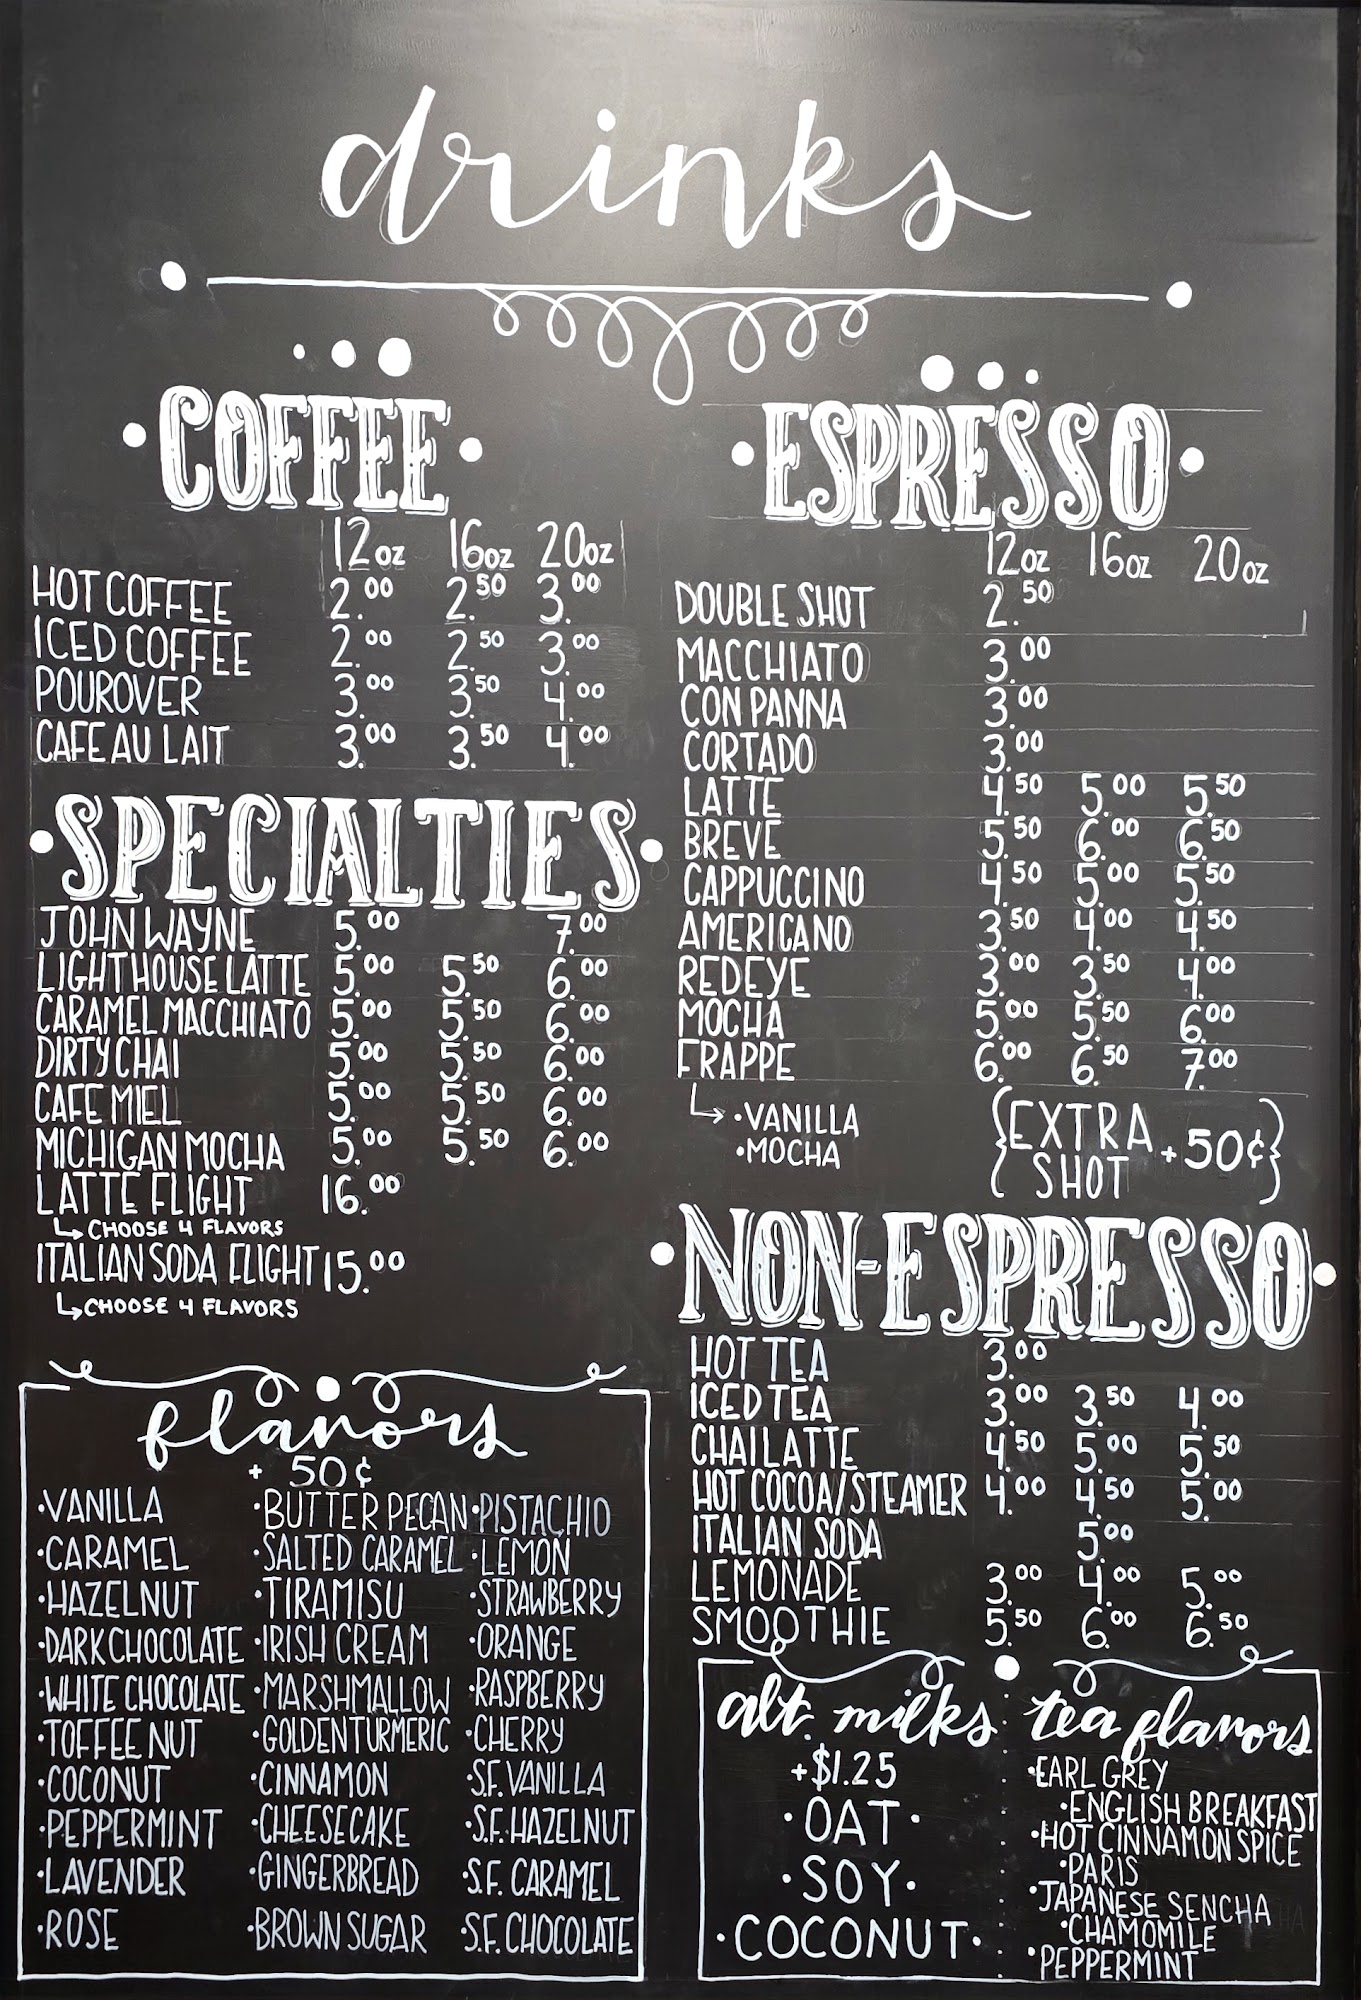 drinks
COFFEE
12oz 16oz 20oz
HOT COFFEE 2.00 2.50 3.00
ICED COFFEE 2.00 2.50 3.00
POUROVER 3.00 3.50 4.00
CAFE AU LAIT 3.00 3.50 4.00
SPECIALTIES
JOHN WAYNE 5.00 7.00
LIGHTHOUSE LATTE 5.00 5.50 6.00
CARAMEL MACCHIATO 5.00 5.50 6.00
DIRTY CHAI 5.00 5.50 6.00
CAFE MIEL 5.00 5.50 6.00
MICHIGAN MOCHA 5.00 5.50 6.00
LATTE FLIGHT 16.00
↳ CHOOSE 4 FLAVORS
ITALIAN SODA FLIGHT 15.00
↳ CHOOSE 4 FLAVORS
flavors
+ 50¢
•VANILLA •BUTTER PECAN •PISTACHIO
•CARAMEL •SALTED CARAMEL •LEMON
•HAZELNUT •TIRAMISU •STRAWBERRY
•DARK CHOCOLATE •IRISH CREAM •ORANGE
•WHITE CHOCOLATE •MARSHMALLOW •RASPBERRY
•TOFFEE NUT •GOLDEN TURMERIC •CHERRY
•COCONUT •CINNAMON •S.F. VANILLA
•PEPPERMINT •CHEESECAKE •S.F. HAZELNUT
•LAVENDER •GINGERBREAD •S.F. CARAMEL
•ROSE •BROWN SUGAR •S.F. CHOCOLATE
ESPRESSO
12oz 16oz 20oz
DOUBLE SHOT 2.50
MACCHIATO 3.00
CON PANNA 3.00
CORTADO 3.00
LATTE 4.50 5.00 5.50
BREVE 5.50 6.00 6.50
CAPPUCCINO 4.50 5.00 5.50
AMERICANO 3.50 4.00 4.50
REDEYE 3.00 3.50 4.00
MOCHA 5.00 5.50 6.00
FRAPPE 6.00 6.50 7.00
↳ •VANILLA
•MOCHA
{EXTRA SHOT +50¢}
NON-ESPRESSO
HOT TEA 3.00
ICED TEA 3.00 3.50 4.00
CHAI LATTE 4.50 5.00 5.50
HOT COCOA/STEAMER 4.00 4.50 5.00
ITALIAN SODA 5.00
LEMONADE 3.00 4.00 5.00
SMOOTHIE 5.50 6.00 6.50
alt. milks
+$1.25
•OAT•
•SOY•
•COCONUT•
tea flavors
•EARL GREY
•ENGLISH BREAKFAST
•HOT CINNAMON SPICE
•PARIS
•JAPANESE SENCHA
•CHAMOMILE
•PEPPERMINT